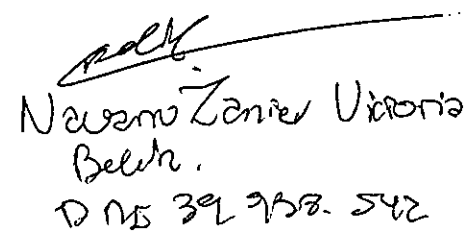 Navarro Zanier Victoria
Belén.
DNI 39 938. 542